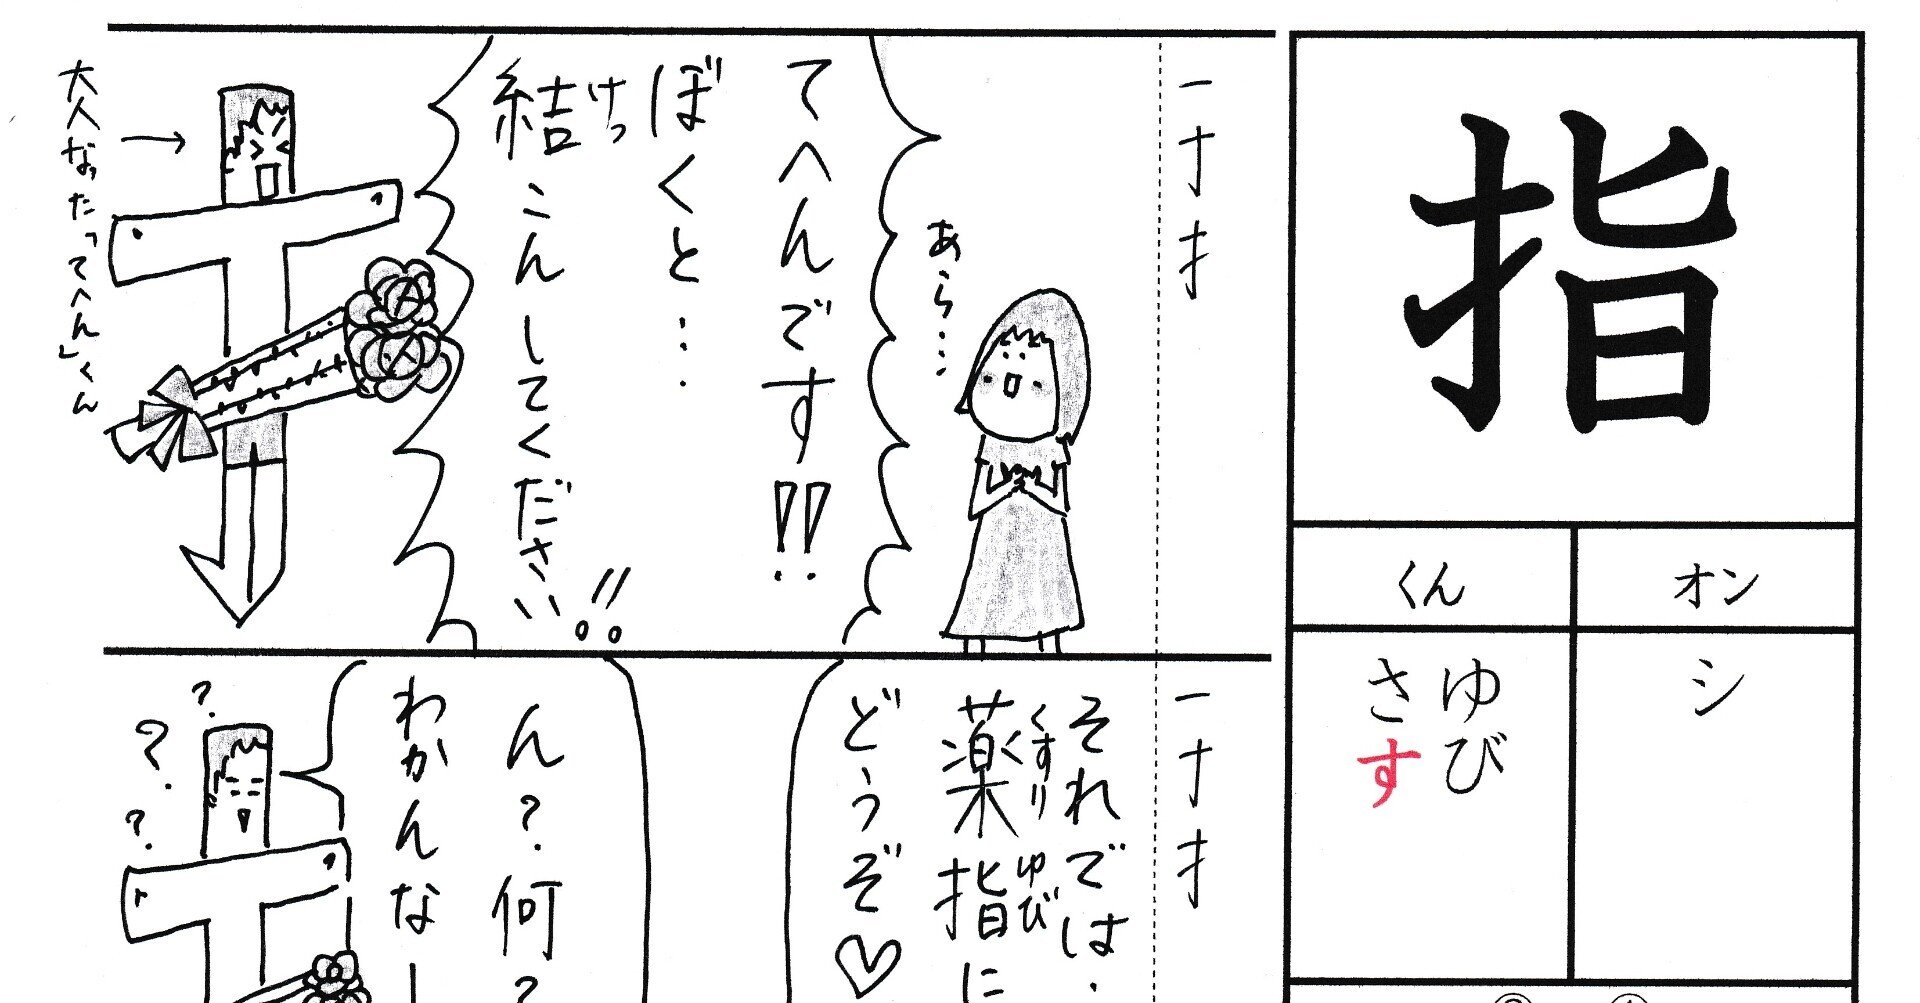 指
オン
くん
シ
ゆび
さす
一 十 扌
あら……
てへんです!!
ぼくと……
結こんしてください!!
けっ
大人なった「てへん」くん
一 十 扌
それでは・
薬指に
くすり ゆび
どうぞ♡
ん?何?
わかんなー
? ? ?